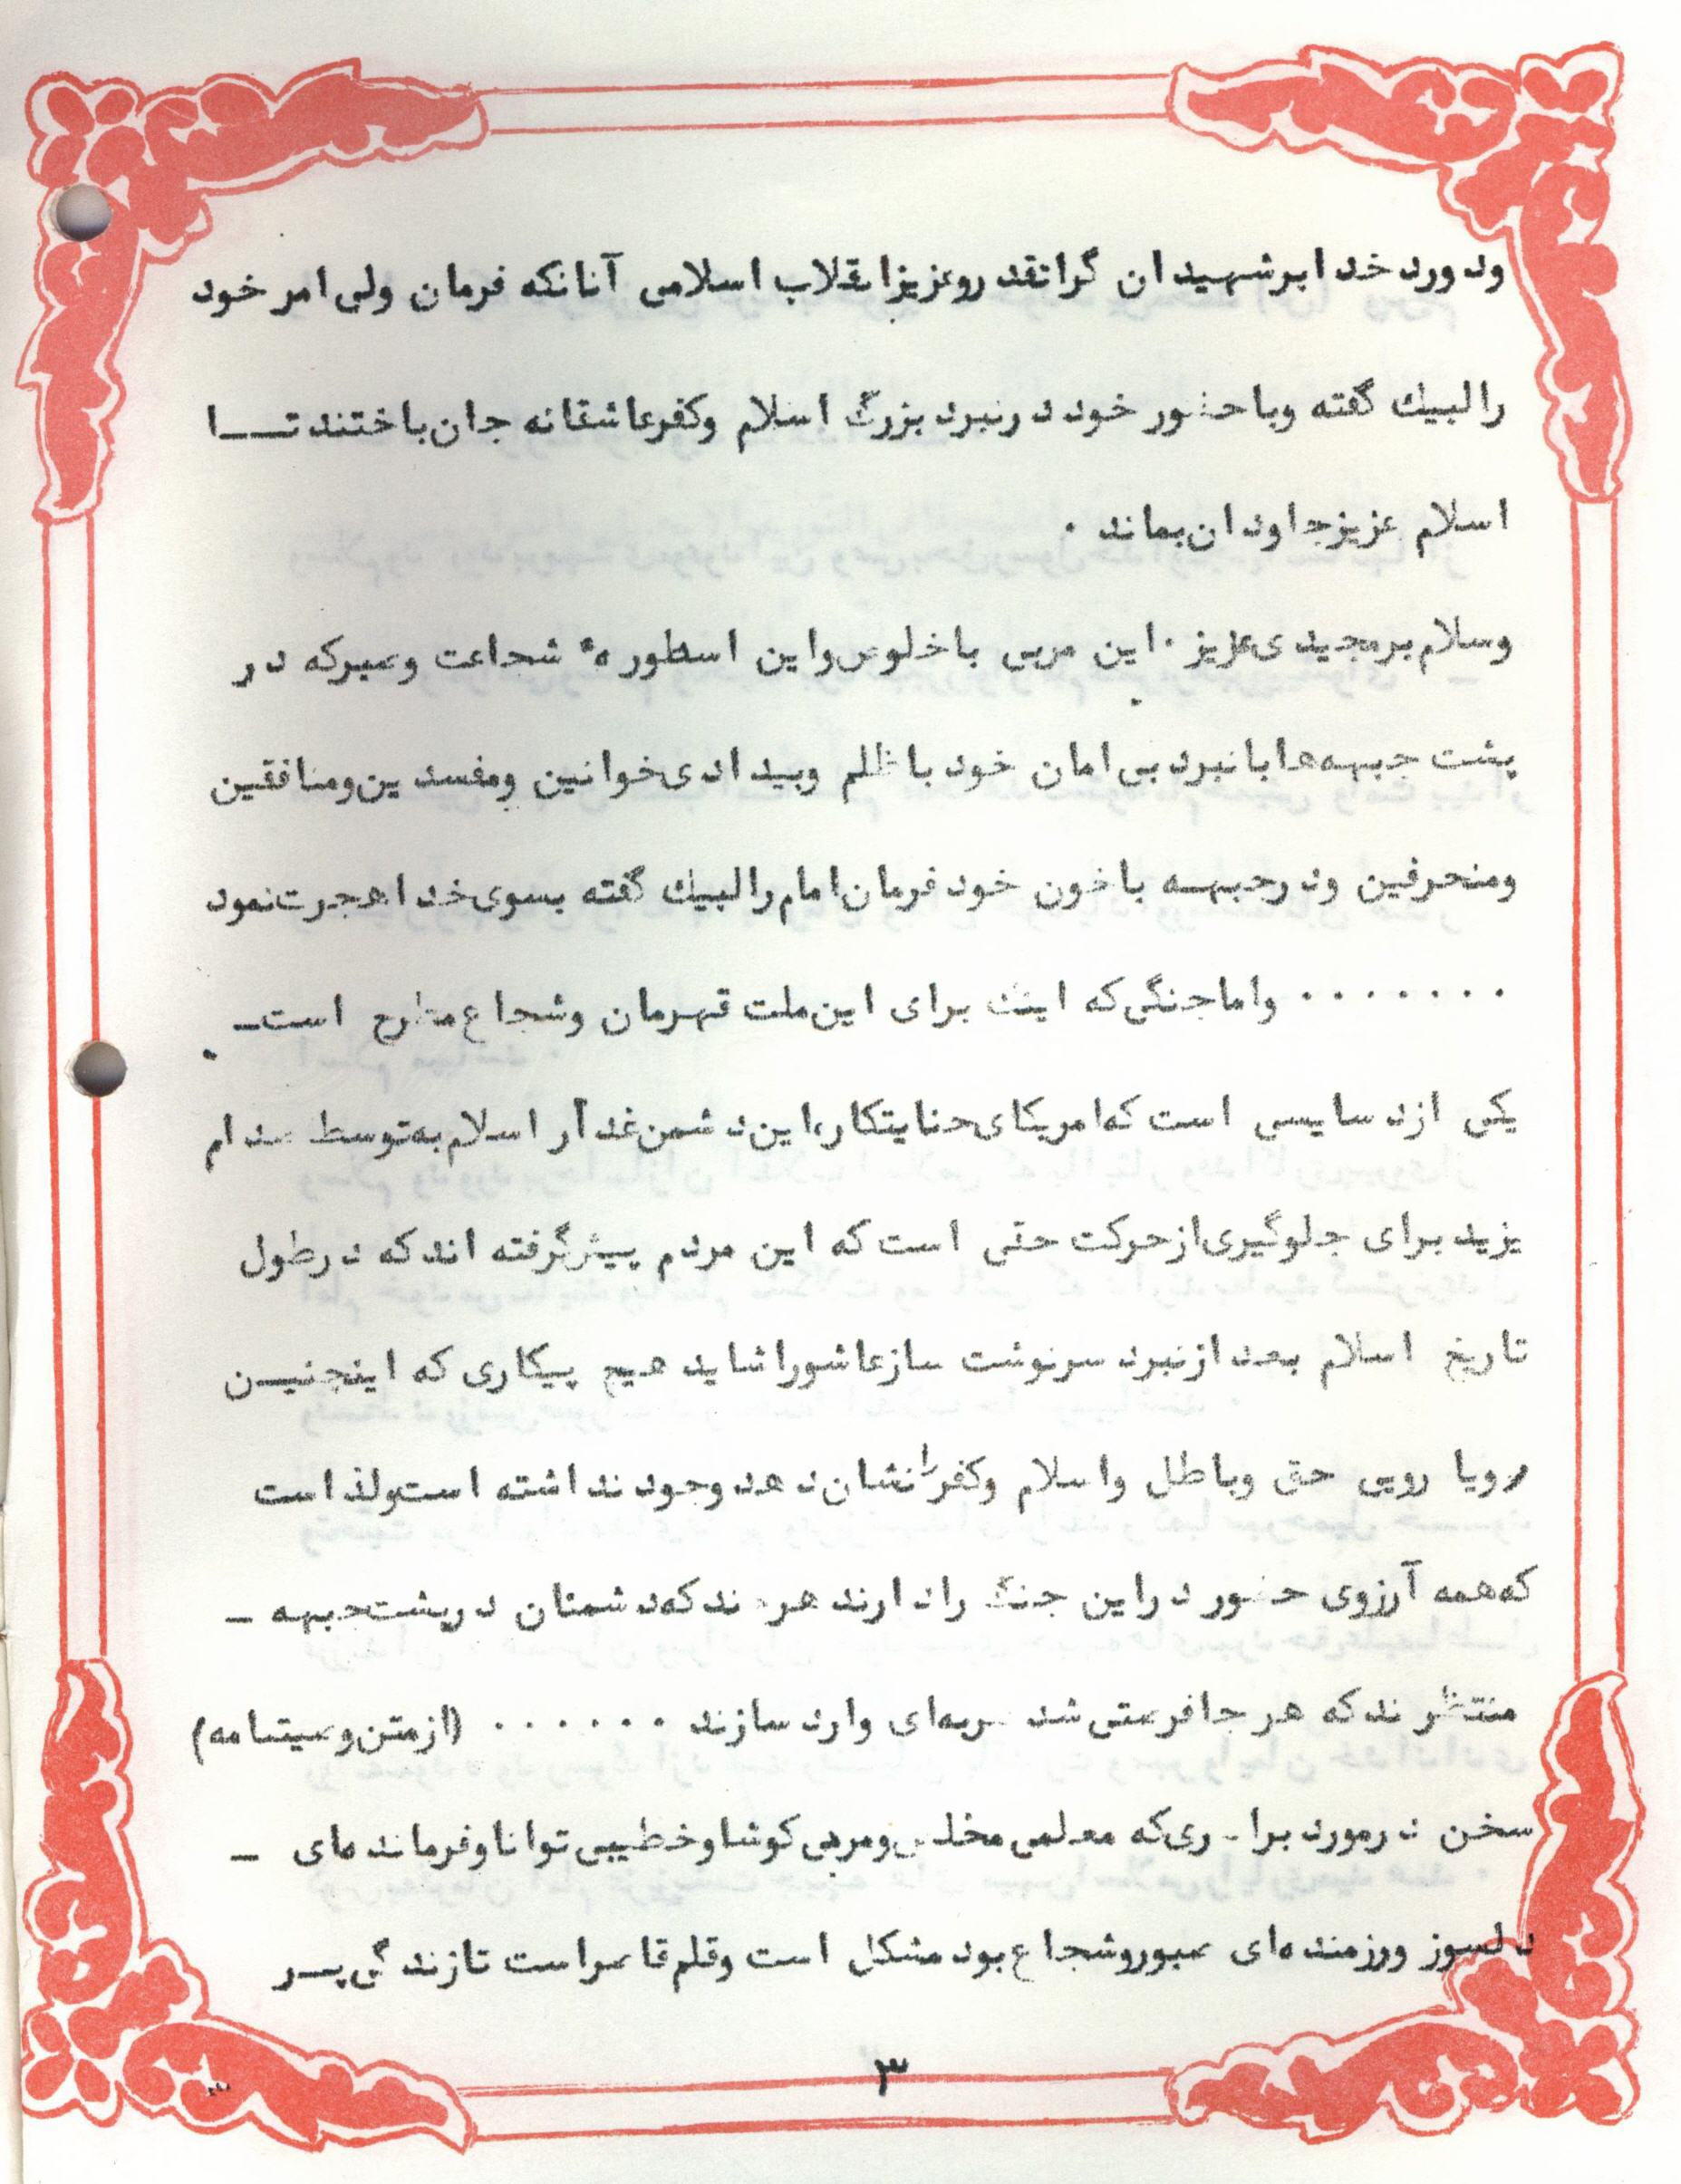 ودورد خدا برشهیدان گرانقدر و عزیز انقلاب اسلامی آنانکه فرمان ولی امر خود
را لبیك گفته وبا حضور خود در نبرد بزرگ اسلام وکفر عاشقانه جان باختند تـــا
اسلام عزیز جاودان بماند ۰
وسلام بر مجیدی عزیز ۰ این مربی با خلوص و این اسطوره ٔ شجاعت وصبر که در
پشت جبهه ها با نبرد بی امان خود با ظلم وبیدادی خوانین ومفسدین ومنافقین
ومنحرفین ودر جبهــه با خون خود فرمان امام را لبیك گفته بسوی خدا هجرت نمود
۰ ۰ ۰ ۰ ۰ ۰ ۰ واما جنگی که اینك برای این ملت قهرمان وشجاع مطرح است ـ
یکی از دسایسی است که امریکای جنایتکار، این دشمن غدار اسلام به توسط صدام
یزید برای جلوگیری از حرکت حقی است که این مردم پیش گرفته اند که در طول
تاریخ اسلام بعد از نبرد سرنوشت ساز عاشورا شاید هیچ پیکاری که اینچنیــن
رویا رویی حق وباطل واسلام وکفر را نشان دهد وجود نداشته است ولذا است
که همه آرزوی حضور در این جنگ را دارند هرچند که دشمنان در پشت جبهه ـ
منتظرند که هر جا فرصتی شد ضربه ای وارد سازند ۰ ۰ ۰ ۰ ۰ ۰ (از متن وصیتنامه)
سخن در مورد برادری که معلمی مخلص ومربی کوشا و خطیبی توانا و فرمانده ای ـ
دلسوز ورزمنده ای صبور و شجاع بود مشکل است وقلم قاصر است تا زندگی پــر
۳